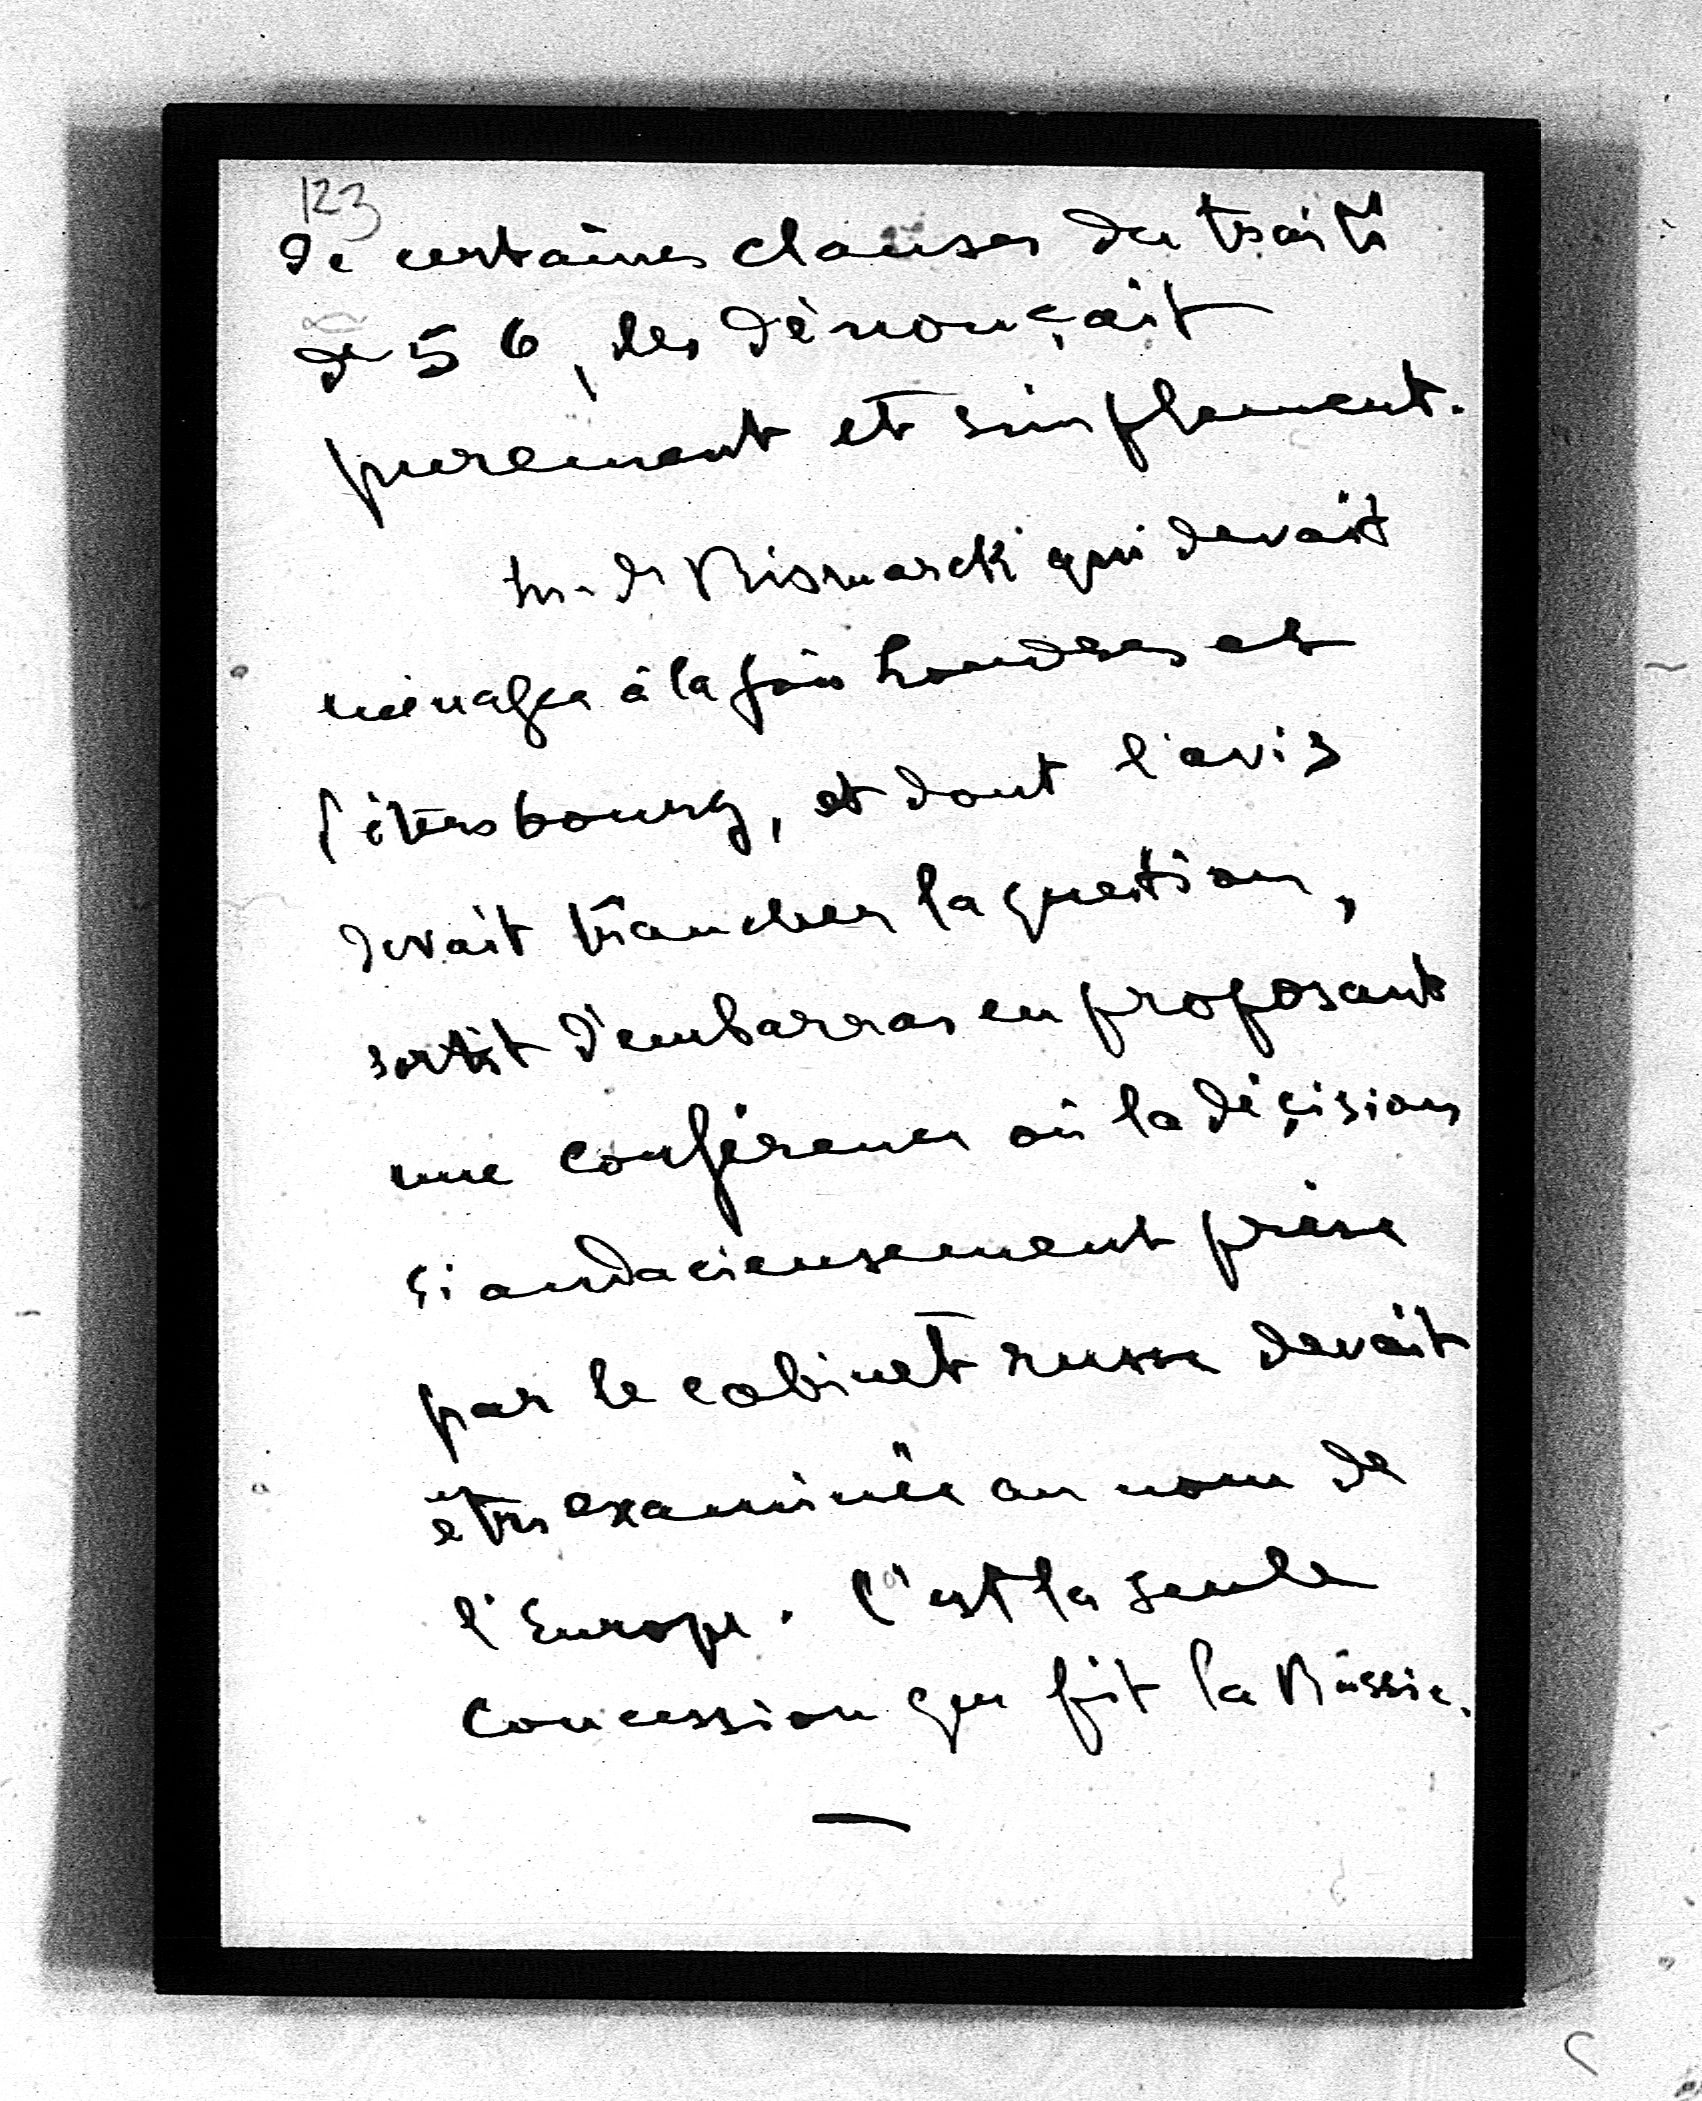 123
de certaines clauses du traité
de 56, les dénonçait
purement et simplement.
M. de Bismarck qui devait
ménager à la fois Londres et
Pétersbourg, et dont l'avis
devait trancher la question,
sortit d'embarras en proposant
une conférence où la décision
si audacieusement prise
par le cabinet russe devait
être examinée au nom de
l'Europe. C'est la seule
concession que fit la Russie.